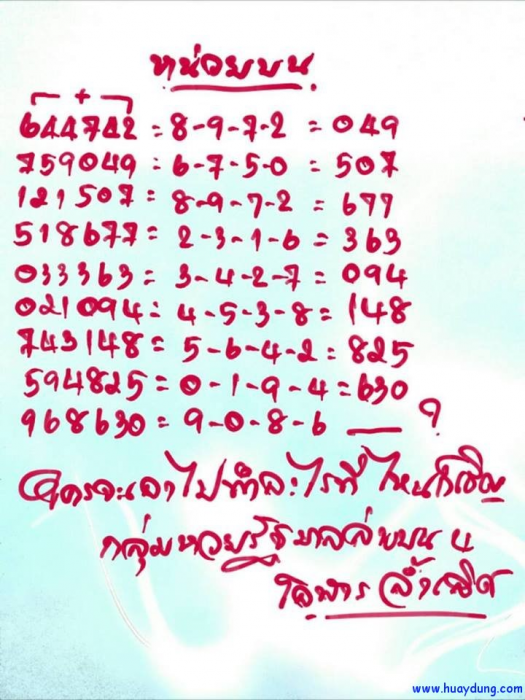 หน่วยบน
+
644742 = 8-9-7-2 = 049
759049 = 6-7-5-0 = 507
121507 = 8-9-7-2 = 677
518677 = 2-3-1-6 = 363
033363 = 3-4-2-7 = 094
021094 = 4-5-3-8 = 148
743148 = 5-6-4-2 = 825
594825 = 0-1-9-4 = 630
968630 = 9-0-8-6 — ?
ใครจะเอาไปทำอะไรที่ไหนก็เชิญ
กลุ่มหวยรัฐบาล
www.huaydung.com